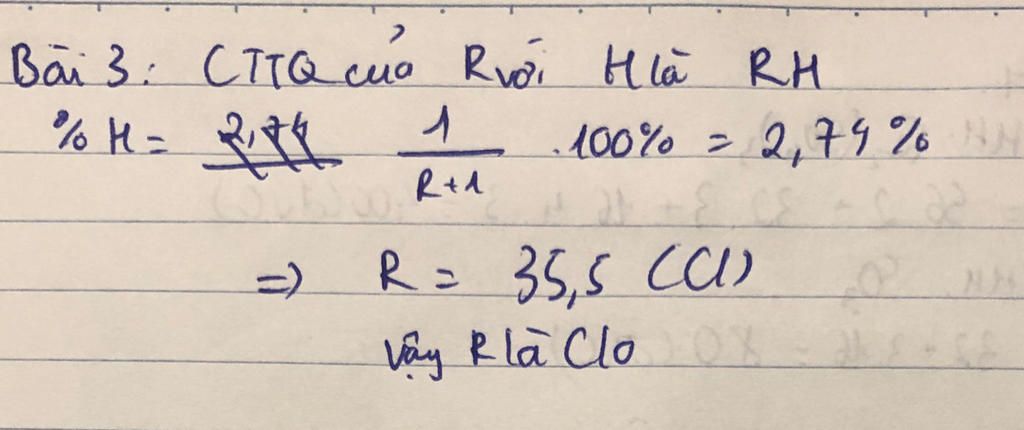 Bài 3: CTTQ của R với H là RH
%H = 2,74 1/(R+1) .100% = 2,74%
=> R = 35,5 (Cl)
vậy R là Clo